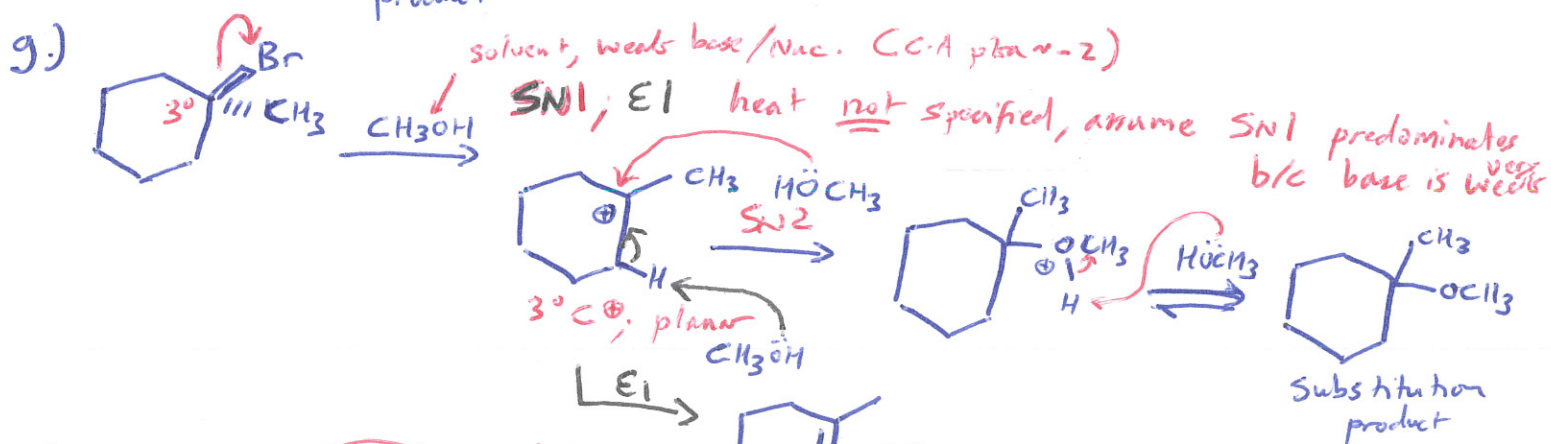 product
g.)
Br
3° CH3
CH3OH
solvent, weak base/Nuc.
SN1, E1 heat not specified, assume SN1 predominates
b/c base is very weak
CH3 HÖCH3
⊕
SN2
H
3° C⊕, planar
CH3ÖH
E1
CH3
OCH3
⊕
H
HÖCH3
CH3
OCH3
substitution
product